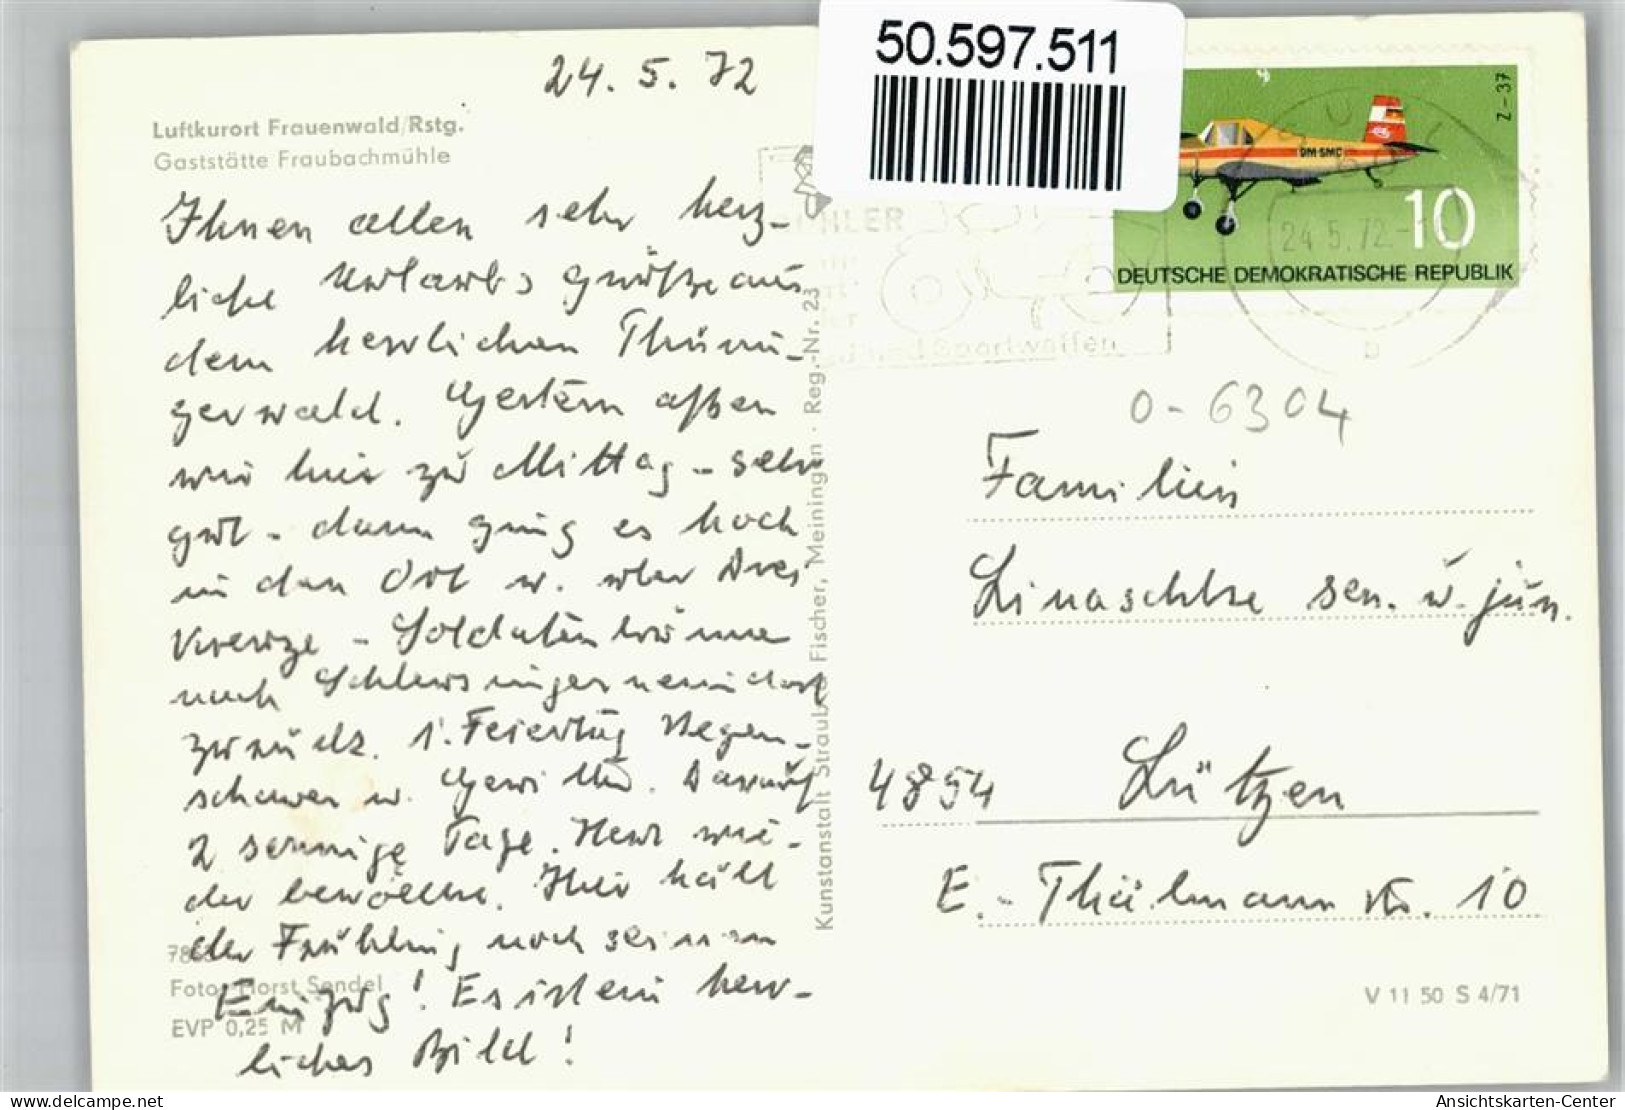 50.597.511
24. 5. 72
Luftkurort Frauenwald/Rstg.
Gaststätte Fraubachmühle
Ihnen allen sehr herz-
liche Urlaubsgrüße aus
dem herrlichen Thürin-
gerwald. Gestern aßen
wir hier zu Mittag - sehr
gut - dann ging es hoch
in den Ort u. über Drei
Kreuze - Soldaten
nach Schleusingerneundorf
zurück. 1. Feiertag Regen-
schauer u. Gewitter. Darauf
2 sonnige Tage. Heut wie-
der bewölkt. Hier hält
der Frühling noch seinen
Einzug! Es ist ein herr-
liches Bild!
Foto: Horst Sendel
EVP 0,25 M
Kunstanstalt Straub & Fischer, Meiningen · Reg.-Nr. 23
HLER
und Sportwaffen
Z-37
DM-SMC
10
DEUTSCHE DEMOKRATISCHE REPUBLIK
SUHL
24.5.72
b
O-6304
Familien
sen. u. jun.
4854 Lützen
E.-Thälmannstr. 10
V 11 50 S 4/71
www.delcampe.net
Ansichtskarten-Center